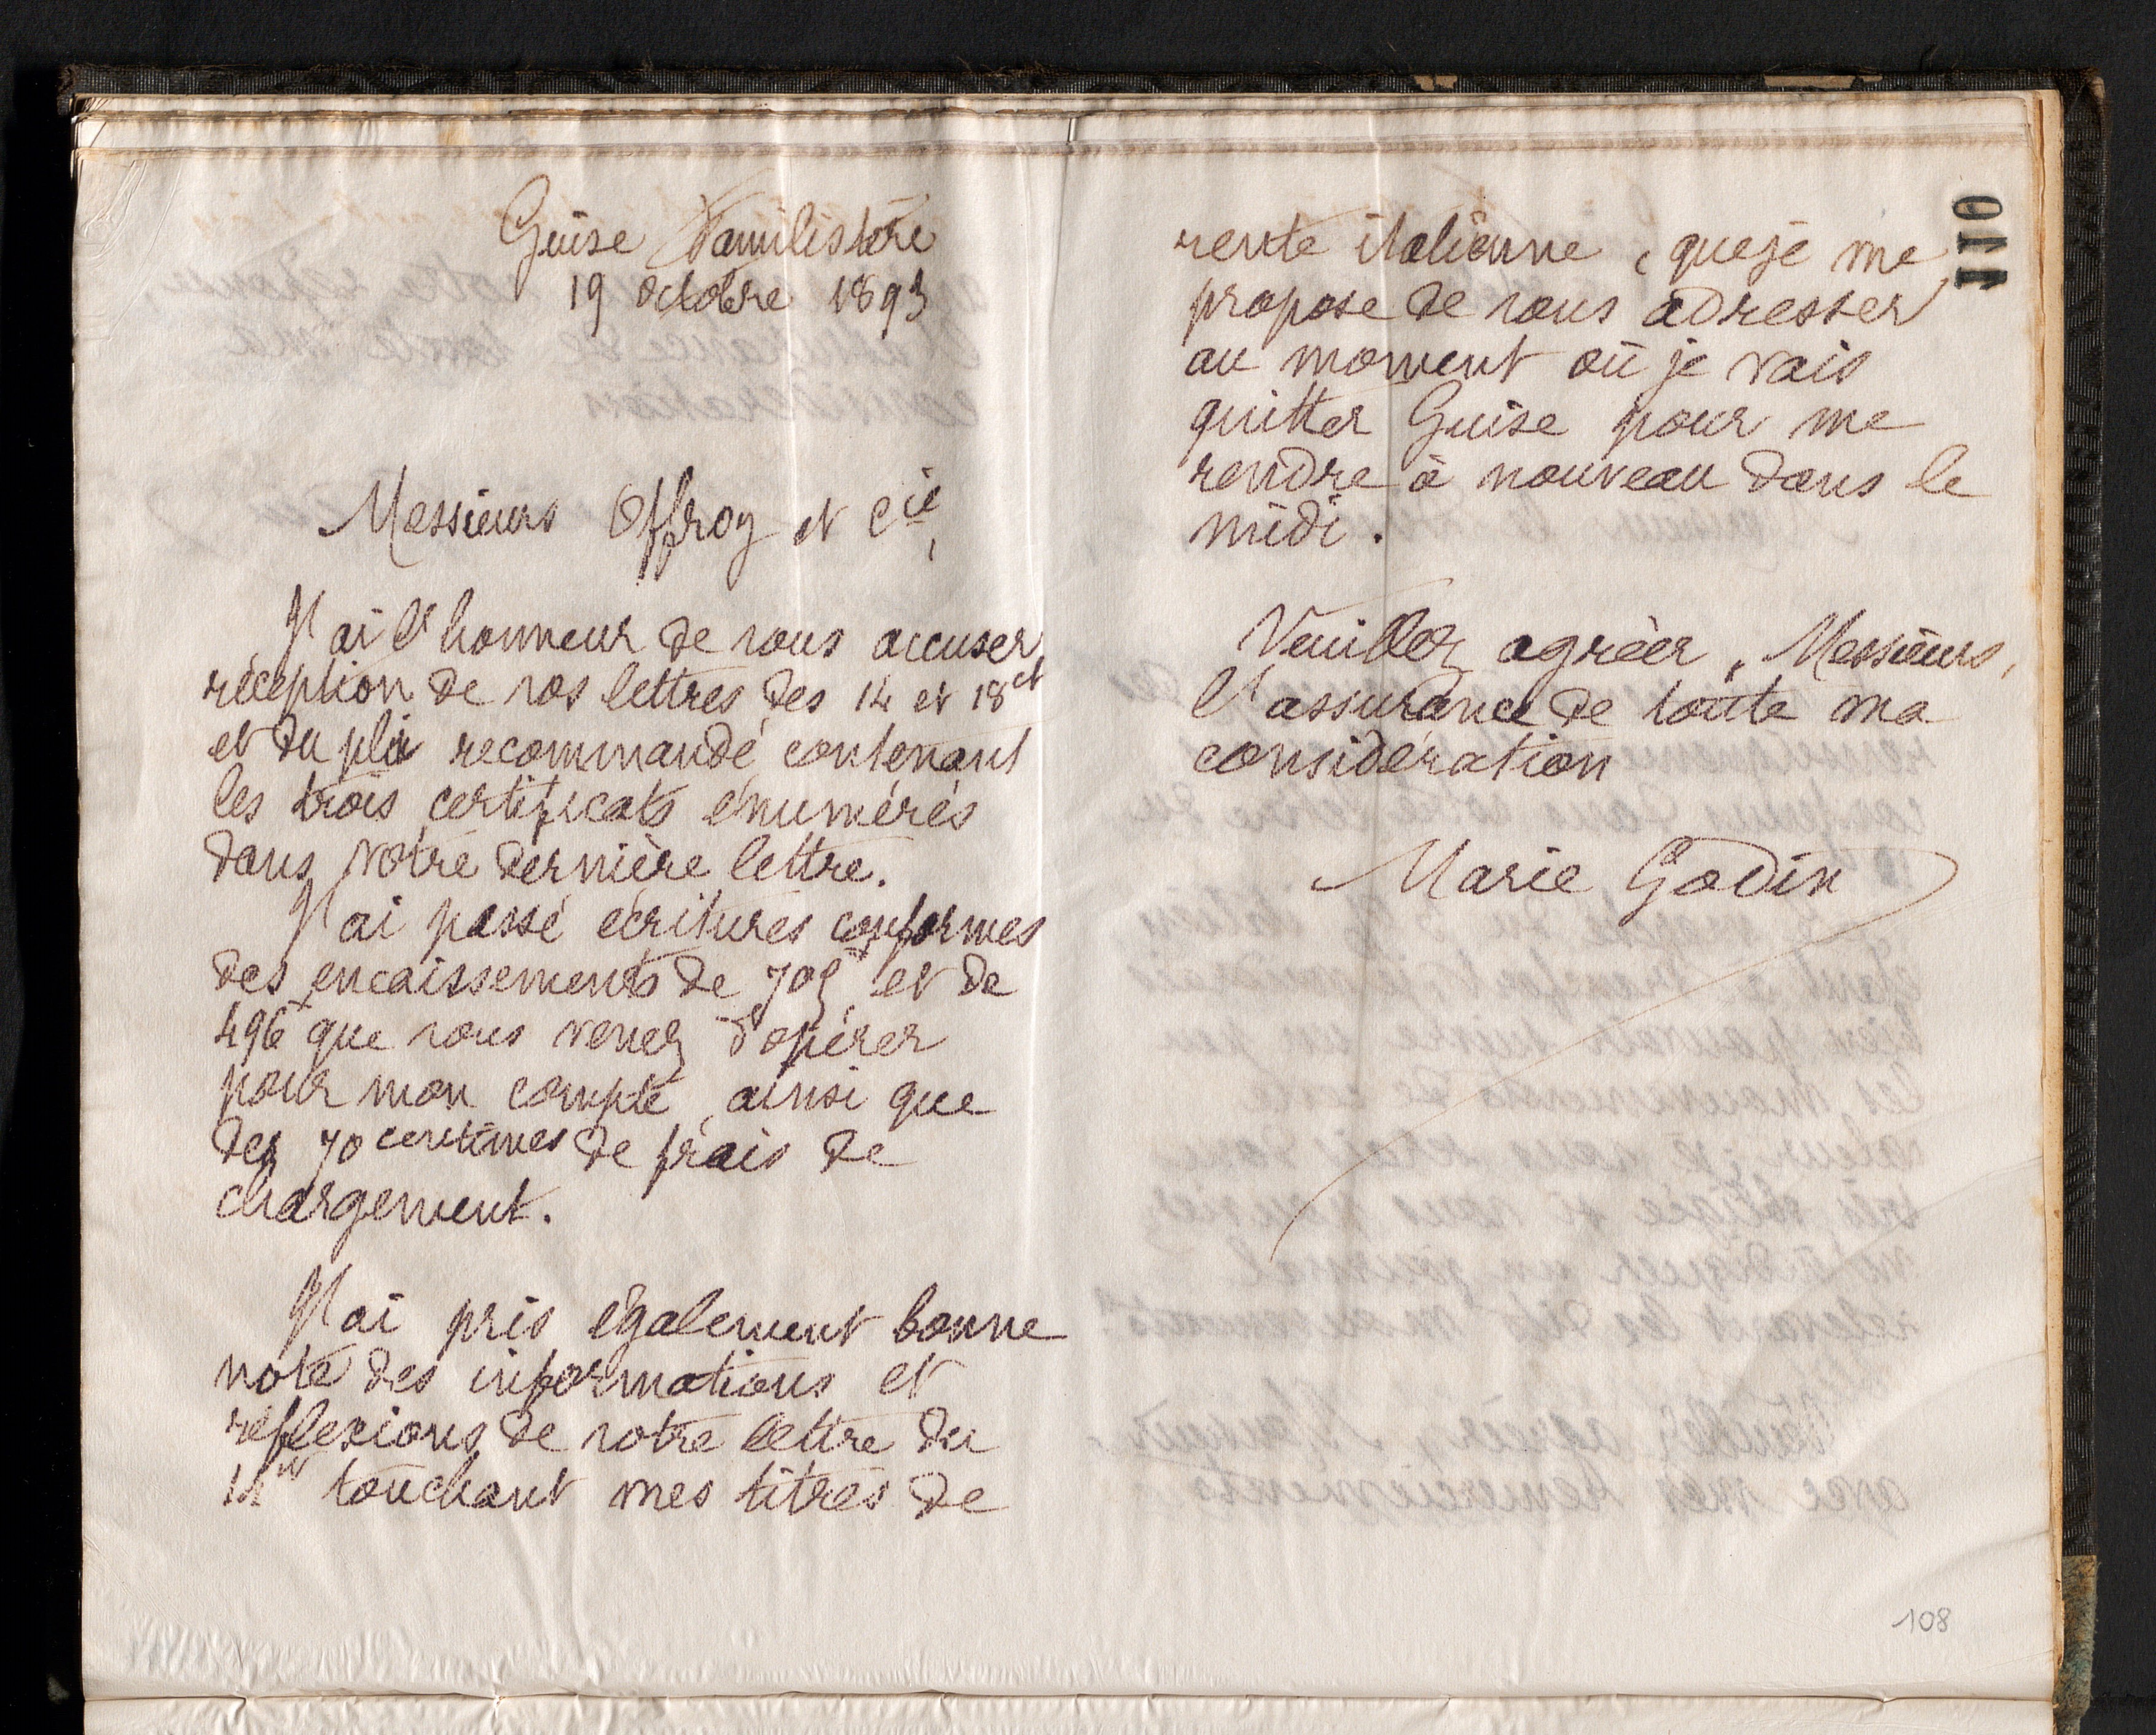 Guise Familistère
19 octobre 1893
Messieurs Offroy et Cie,
J'ai l'honneur de vous accuser
réception de vos lettres des 14 et 18 ct
et du pli recommandé contenant
les trois certificats énumérés
dans votre dernière lettre.
J'ai passé écritures conformes
des encaissements de 705 f et de
496 f que vous venez d'opérer
pour mon compte, ainsi que
des 70 centimes de frais de
chargement.
J'ai pris également bonne
note des informations et
réflexions de votre lettre du
14 ct touchant mes titres de
110
rente italienne, que je me
propose de vous adresser
au moment où je vais
quitter Guise pour me
rendre à nouveau dans le
midi.
Veuillez agréer, Messieurs,
l'assurance de toute ma
considération
Marie Godin
108